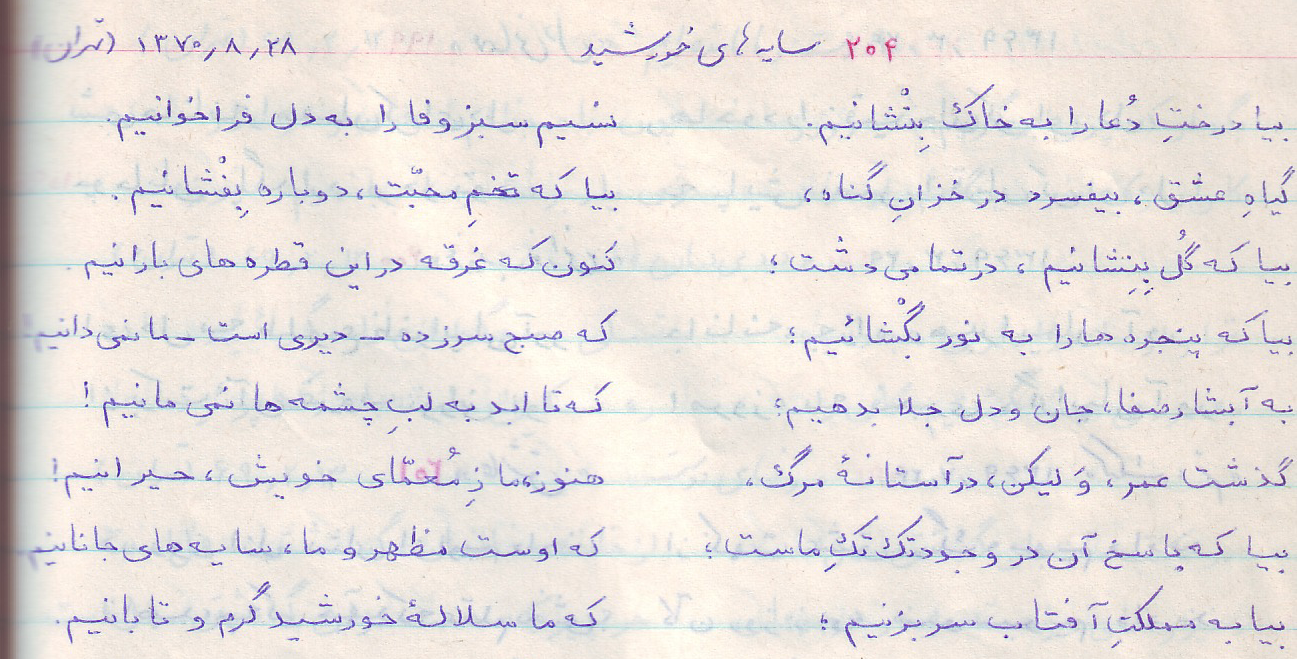 ۲۰۴ سایه‌های خورشید ۱۳۷۰٫۸٫۲۸ (تهران)
بیا درختِ دُعا را به خاک بِنْشانیم! نسیم سبز وفا را به دل فرا خوانیم.
گیاهِ عشق، بیفسرد در خزانِ گناه، بیا که تخمِ محبّت، دوباره بِفْشانیم.
بیا که گُل بِنِشانیم، در تمامی دشت؛ کنون که غرقه در این قطره های بارانیم.
بیا که پنجره ها را به نور بگْشائیم؛ که صبح سرزده – دیری است – ما نمی دانیم!
به آبشار صفا، جان و دل جلا بدهیم؛ که تا ابد به لبِ چشمه ها نمی مانیم!
گذشت عمر، وَ لیکن، در آستانهٔ مرگ، هنوز، ما زِ مُعمّای خویش، حیرانیم!
بیا که پاسخ آن در وجود تک تکِ ماست؛ که اوست مظهر و ما، سایه های جانانیم
بیا به مملکتِ آفتاب سر بزنیم؛ که ما سلالهٔ خورشید گرم و تابانیم.